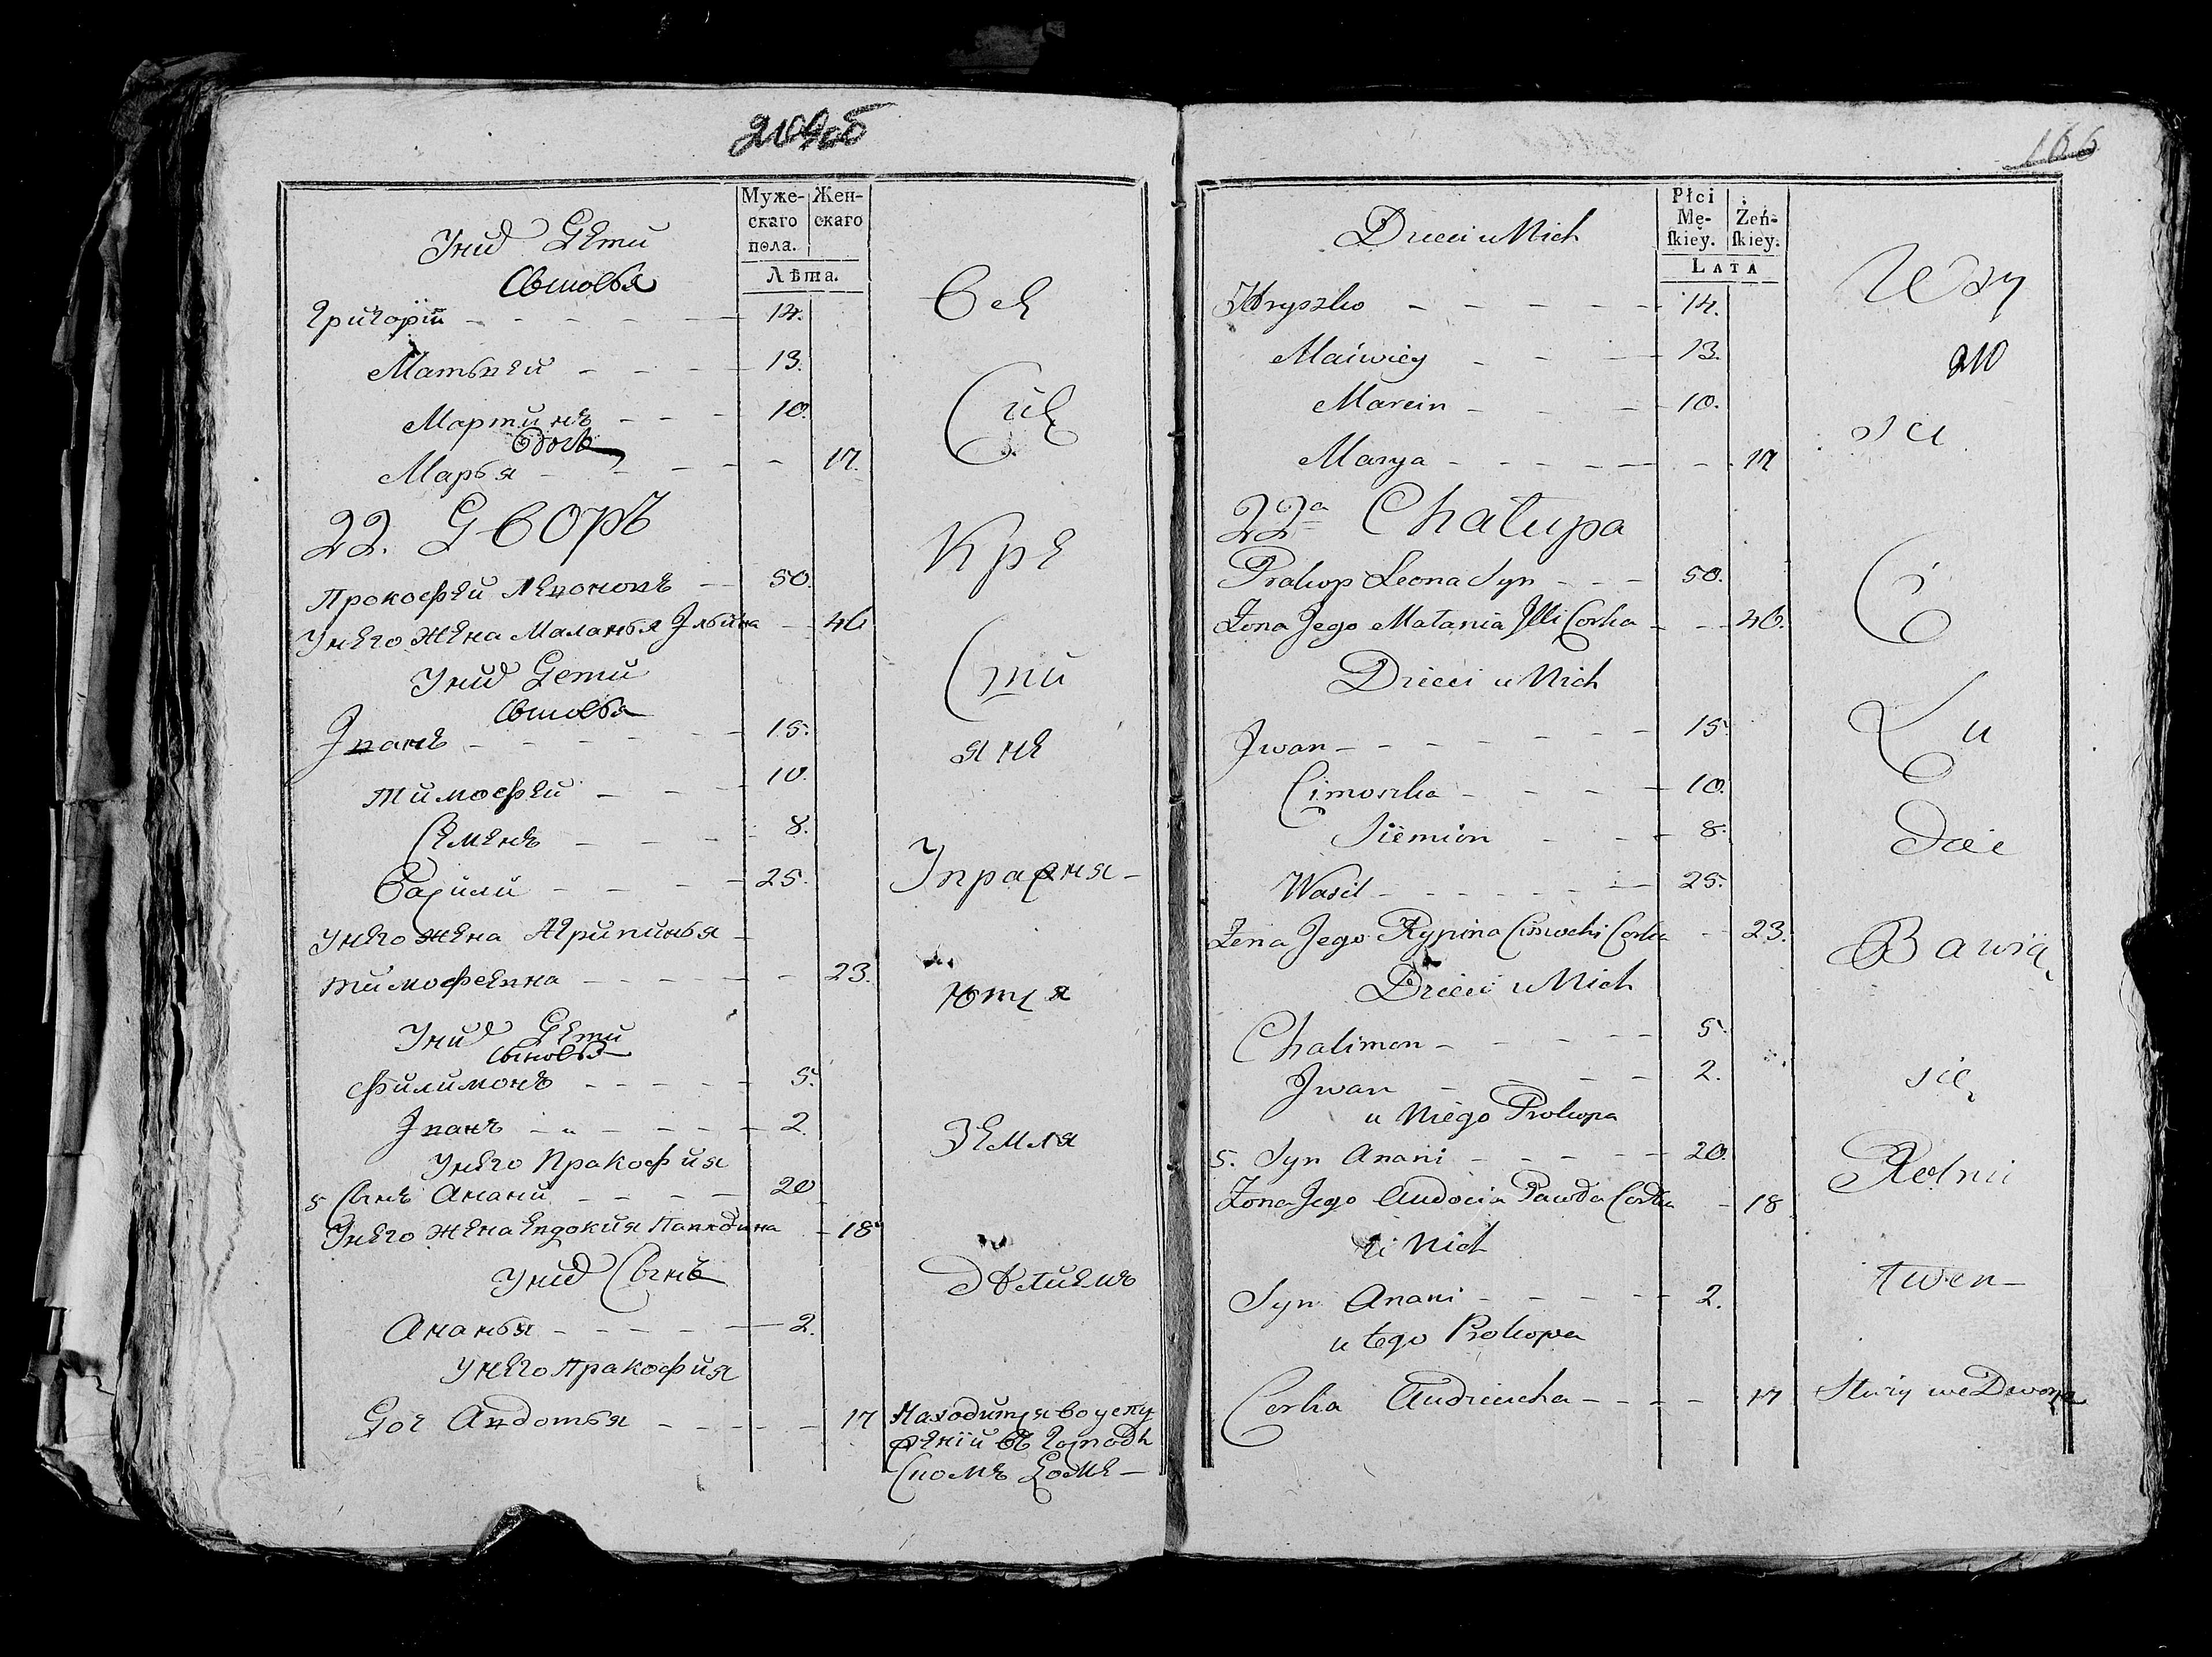 209об
Муже- Жен-
скаго скаго
пола.
Лѣта.
У нихъ Дети
Сыновья
Григорїй 14.
Матьвей 13.
Мартинъ 10.
Дочь
Марья 17.
22. Дворъ
Прокофей Леоновъ 50.
У него жена Маланья Ильина 46
У нихъ Дети
Сыновья
Иванъ 15.
Тимофей 10.
Семенъ 8.
Василй 25.
У него жена Агрипинья
Тимофеевна 23.
У нихъ Дети
Сыновья
Филимонъ 5.
Иванъ 2.
У него Пракофия
5 Сынъ Анани 20
У него жена Евдокия Павлова 18
У нихъ Сынъ
Ананья 2.
У него Пракофия
Доч Авдотья 17
Все
Сие
Кре
сти
яне
Упражня-
ются
Земля
дѣлиемъ
Находится во услу
жениї въ Господс
комъ Доме
166
Płci
Mę- Żeń-
ſkiey. ſkiey.
LATA
Dzieci u Nich
Hryszko 14.
Maćwiey 13.
Marcin 10.
Marya 17
22a Chałupa
Prokop Leona Syn 50.
Żona Jego Małania Illi Corka 46.
Dzieci u Nich
Jwan 15.
Cimoszka 10.
Siemion 8.
Wasil 25.
Żena Jego Rypina Cimochi Corka 23.
Dzieci u Nich
Chalimon 5.
Jwan 2.
u Niego Prokopa
5. Syn Anani 20.
Żona Jego Audocia Pawła Corka 18
u Nich
Syn Anani 2.
u tego Prokopa
Corka Audziucha 17
Wszy
210
sci
Ci
Lu
dzie
Bawią
się
Rolni
ctwen
Służy we Dworze